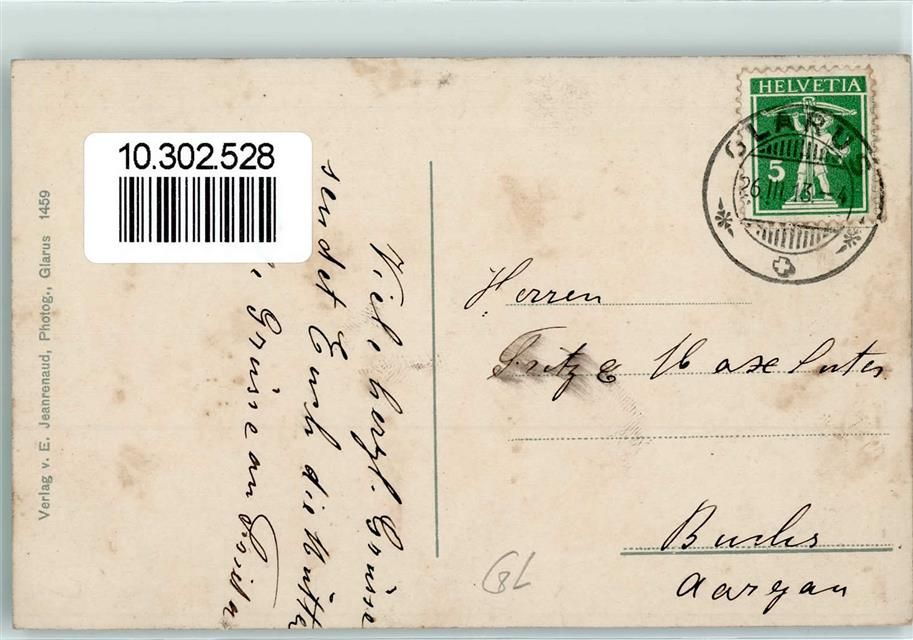 HELVETIA
5
GLARUS
26.III.13. 4
10.302.528
Verlag v. E. Jeanrenaud, Photog., Glarus 1459
Viele herzl. Grüsse
sendet Euch die Mutter
Grüsse an Frida
Herren
Fritz & Max Suter
Buchs
Aargau